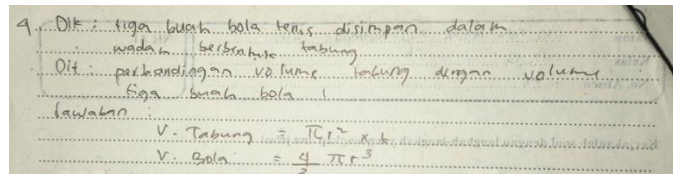 4. Dik : tiga buah bola tenis disimpan dalam
wadah berbentuk tabung
Dit : perbandingan volume tabung dengan volume
tiga buah bola !
Jawaban :
V. Tabung = πr² x t
V. Bola = 4/3 πr³